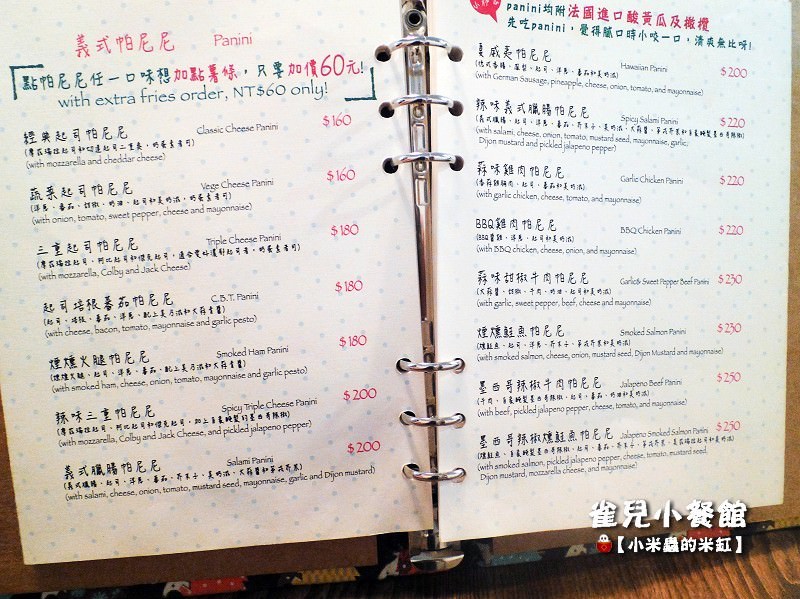 義式帕尼尼 Panini
點帕尼尼任一口味想加點薯條，只要加價60元!
with extra fries order, NT$60 only!
經典起司帕尼尼 Classic Cheese Panini $160
(with mozzarella and cheddar cheese)
蔬菜起司帕尼尼 Vege Cheese Panini $160
(with onion, tomato, sweet pepper, cheese and mayonnaise)
三重起司帕尼尼 Triple Cheese Panini $180
(with mozzarella, Colby and Jack Cheese)
起司培根番茄帕尼尼 C.B.T. Panini $180
(with cheese, bacon, tomato, mayonnaise and garlic pesto)
煙燻火腿帕尼尼 Smoked Ham Panini $180
(with smoked ham, cheese, onion, tomato, mayonnaise and garlic pesto)
辣味三重帕尼尼 Spicy Triple Cheese Panini $200
(with mozzarella, Colby and Jack Cheese, and pickled jalapeno pepper)
義式臘腸帕尼尼 Salami Panini $200
(with salami, cheese, onion, tomato, mustard seed, mayonnaise, garlic and Dijon mustard)
panini均附法國進口酸黃瓜及橄欖
先吃panini，覺得膩口時小咬一口，清爽無比呀!
夏威夷帕尼尼 Hawaiian Panini $200
(德式香腸、鳳梨、起司、洋蔥、番茄和美奶滋)
(with German Sausage, pineapple, cheese, onion, tomato, and mayonnaise)
辣味義式臘腸帕尼尼 Spicy Salami Panini $220
(with salami, cheese, onion, tomato, mustard seed, mayonnaise, garlic,
Dijon mustard and pickled jalapeno pepper)
蒜味雞肉帕尼尼 Garlic Chicken Panini $220
(with garlic chicken, cheese, tomato and mayonnaise)
BBQ雞肉帕尼尼 BBQ Chicken Panini $220
(BBQ醬雞、洋蔥、起司和美奶滋)
(with BBQ chicken, cheese, onion, and mayonnaise)
蒜味甜椒牛肉帕尼尼 Garlic& Sweet Pepper Beef Panini $230
(with garlic, sweet pepper, beef, cheese and mayonnaise)
煙燻鮭魚帕尼尼 Smoked Salmon Panini $230
(with smoked salmon, cheese, onion, mustard seed, Dijon Mustard and mayonnaise)
墨西哥辣椒牛肉帕尼尼 Jalapeno Beef Panini $250
(with beef, pickled jalapeno pepper, cheese, tomato, and mayonnaise)
墨西哥辣椒燻鮭魚帕尼尼 Jalapeno Smoked Salmon Panini $250
(with smoked salmon, pickled jalapeno pepper, cheese, tomato, onion, mustard seed,
Dijon mustard, mozzarella cheese, and mayonnaise)
雀兒小餐館
【小米蟲的米缸】